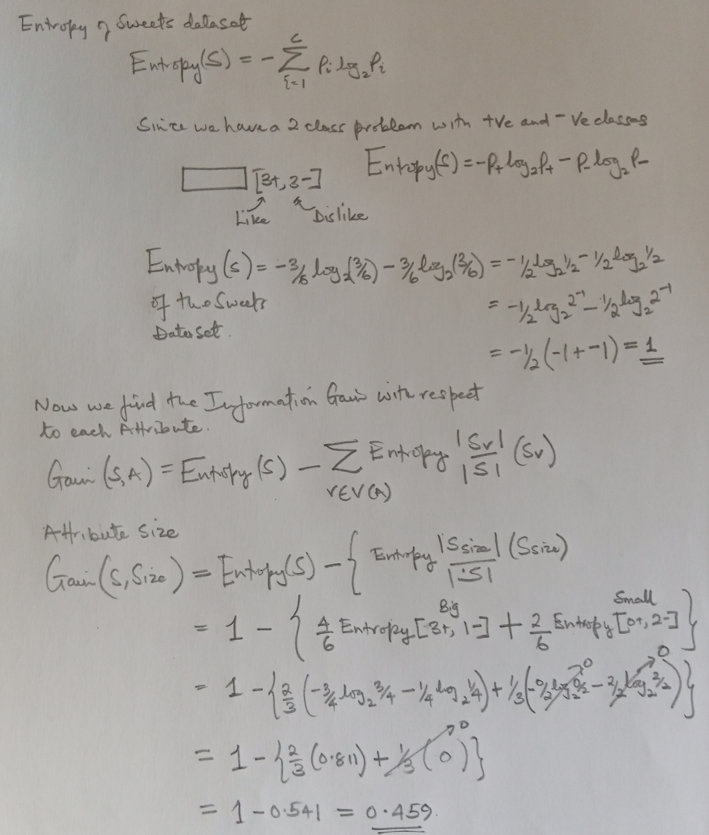 Entropy of Sweets dataset
Entropy(S) = - ∑_{i=1}^{c} Pi log₂ Pi
Since we have a 2 class problem with +ve and -ve classes
[3+, 3-] Entropy(S) = -P₊ log₂ P₊ - P₋ log₂ P₋
Like Dislike
Entropy(S) = -3/6 log₂(3/6) - 3/6 log₂(3/6) = -1/2 log₂ 1/2 - 1/2 log₂ 1/2
of the Sweets = -1/2 log₂ 2⁻¹ - 1/2 log₂ 2⁻¹
Dataset. = -1/2 (-1 + -1) = 1
Now we find the Information Gain with respect
to each Attribute.
Gain(S,A) = Entropy(S) - ∑_{v∈V(A)} Entropy |Sv|/|S| (Sv)
Attribute Size
Gain(S,Size) = Entropy(S) - { Entropy |Ssize|/|S| (Ssize)
Big Small
= 1 - { 4/6 Entropy[3+, 1-] + 2/6 Entropy[0+, 2-] }
= 1 - { 2/3 (-3/4 log₂ 3/4 - 1/4 log₂ 1/4) + 1/3 (-0/2 log₂ 0/2 → 0 - 2/2 log₂ 2/2 → 0) }
= 1 - { 2/3 (0.811) + 1/3 (0) → 0 }
= 1 - 0.541 = 0.459.